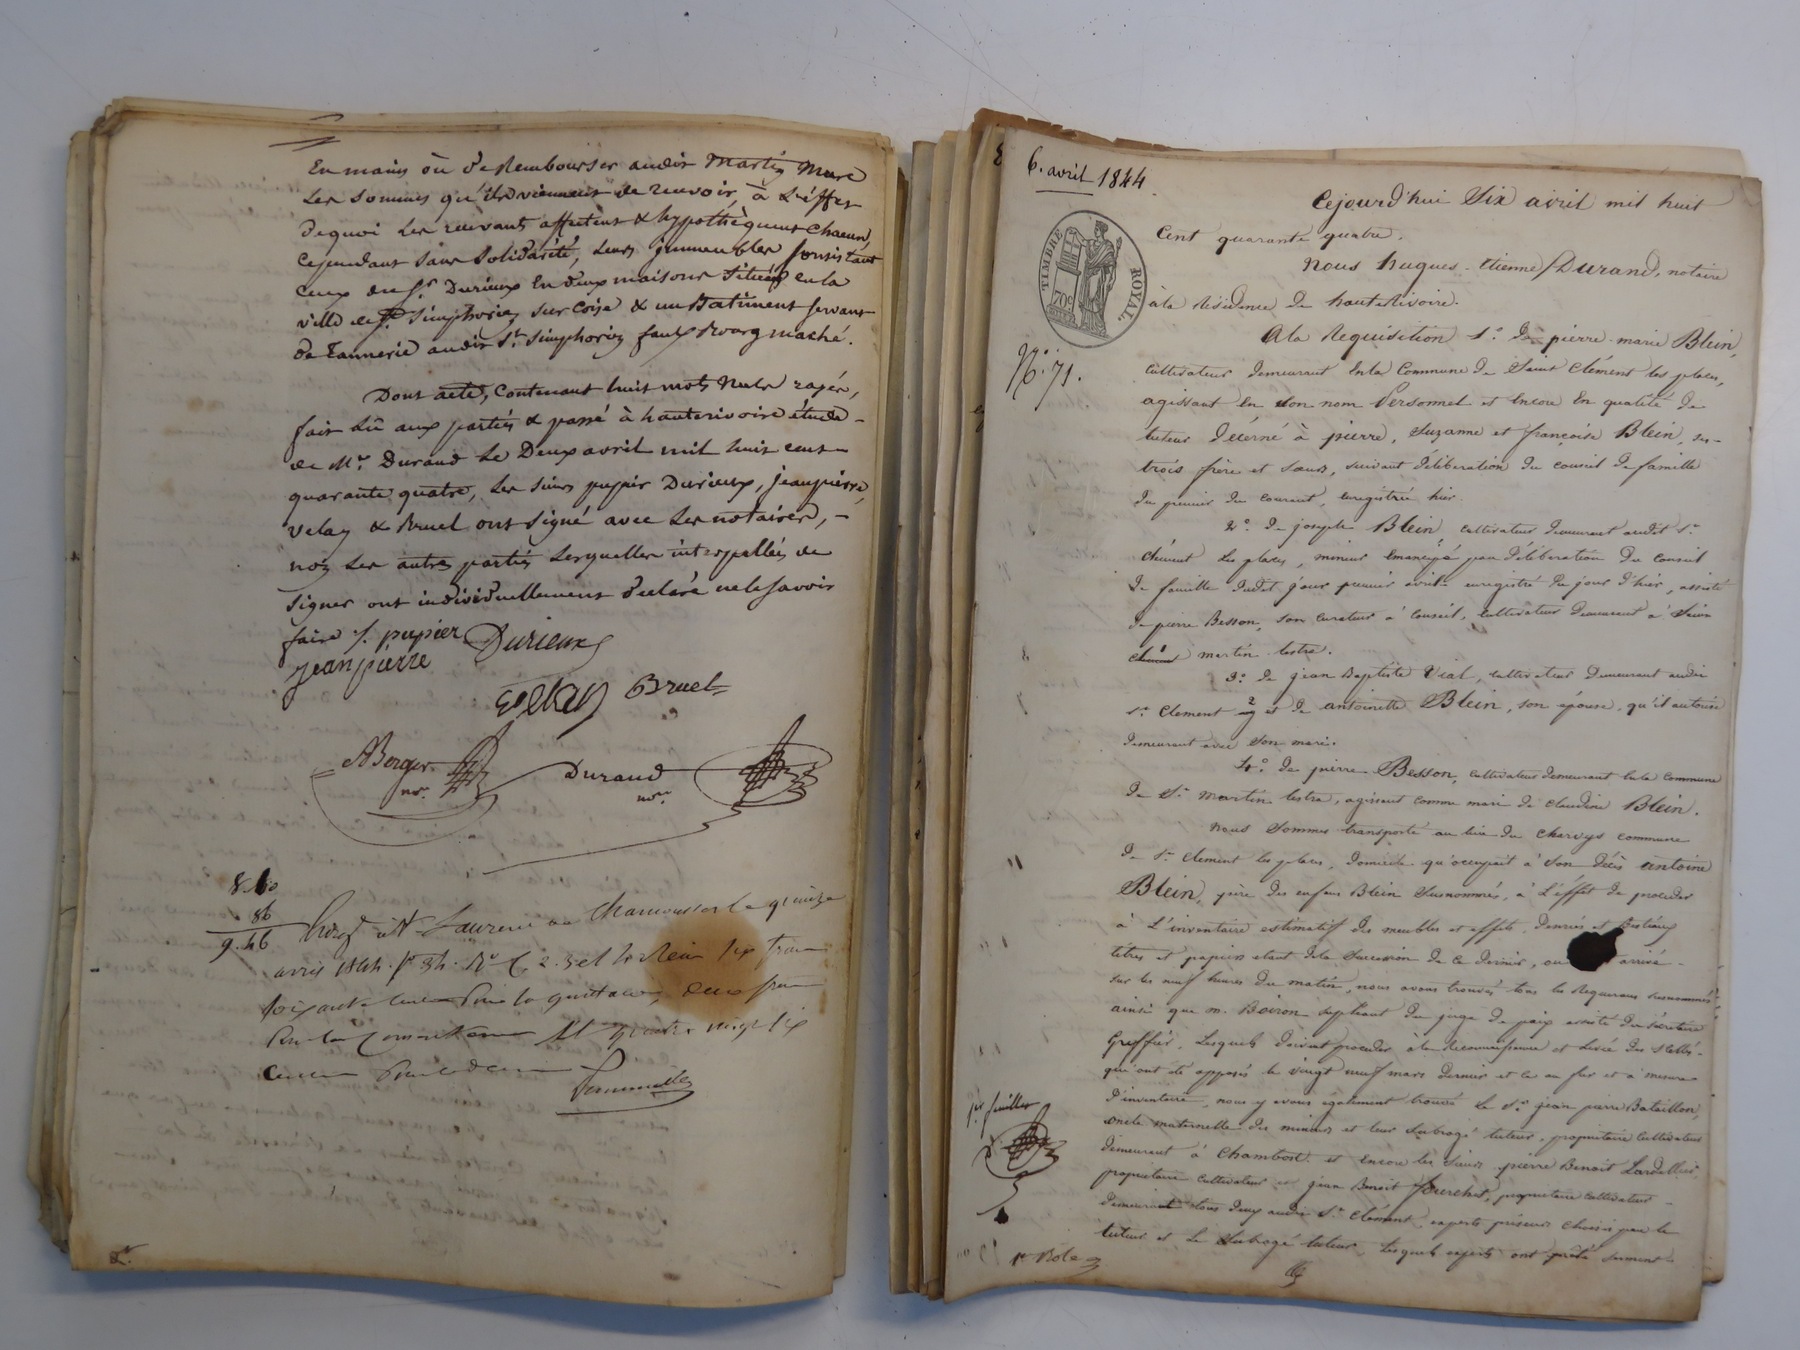 En mains ou de Rembourser audit Martin Mure
Les Sommes qu'ils viennent de recevoir, à L'éffet
dequoi Les recevants affectent & hypothèquent Chacun,
cependant sans Solidarité, Leurs jmmeubles Consistant
ceux du Sr. Durieux En deux maisons Situées en la
ville de St. Simphorien sur Coise & un Batiment servant
de Tannerie audit St. Simphorien faubourg maché.
Dont acte, Contenant huit mots Nuls rayés,
fait Lû aux parties & passé à hauterivoire étude
de Me. Durand Le Deux avril mil huit cent
quarante quatre, Les sieurs pupier Durieux, jeanpierre,
velay & Bruel ont Signé avec Les notaires,
non Les autres parties Lesquelles interpellées de
Signer ont individuellement déclaré ne le Savoir
faire ./. pupier Durieux
jeanpierre
velay Bruel
ABerger Durand
nre. nre.
86
9.46
Enregt à St Laurent de Chamousset le quinze
avril 1844. fo 34. Ro C. 2. 3 et 4. Reçu six francs
soixante cent. Pour la quittance, deux francs
quatre vingt six
6. avril 1844
Cejourd'hui Six avril mil huit
Cent quarante quatre.
TIMBRE ROYAL.
70c
Nous hugues-Etienne Durand, notaire
à la Résidence de hauteRivoire.
No. 71.
A la Requisition 1o. De pierre-marie Blein,
cultivateur demeurant En la Commune de Saint Clément les places,
agissant En son nom Personnel et Encore En qualité de
tuteur Décerné à pierre, Suzanne et françoise Blein, ses
trois frère et sœurs, suivant délibération du conseil de famille
du premier du courant, enregistrée hier.
2o. De joseph Blein, cultivateur demeurant audit St.
Clément Les places, mineur émancipé par Délibération du Conseil
de famille dudit jour premier avril enregistré du jour d'hier, assisté
de pierre Besson, son curateur à Conseil, cultivateur Demeurant à Saint
Clément martin-lestra.
3o. De jean Baptiste Vial, cultivateur Demeurant audit
St. Clement et de antoinette Blein, son épouse, qu'il autorise
Demeurant avec son mari.
4o. De pierre Besson, cultivateur demeurant en la Commune
De St. martin lestra, agissant comme mari de claudine Blein.
Nous Sommes transporté au lieu du Charvys commune
De St. Clement les places, Domicile qu'occupait à son Décès antoine
Blein, père des enfans Blein Susnommés, à L'éffet de proceder
à L'inventaire estimatif des meubles et effets, Denrées et Bestiaux
titres et papiers etant de la Succession de ce dernier, ou arrivé
sur les neuf heures du matin, nous avons trouvés tous les Requerans susnommés
ainsi que m. Boiron supleant du juge de paix assisté du Sécretaire
Greffier. Lesquels doivent proceder à la Reconnaissance et Levée des Scellés
qui ont été apposés le vingt neuf mars dernier et ce au fur et à mesure
D'inventaire, nous y avons également trouvé le Sr. jean pierre Bataillon,
oncle maternelle des mineurs et leur Subrogé tuteur, proprietaire Cultivateur
demeurant à Chambost. et Encore les Sieurs pierre Benoit Lardellier,
proprietaire Cultivateur et jean Benoit Fourchet, proprietaire Cultivateur
Demeurant tous Deux audit St. Clément, experts présens choisis par le
tuteur et Le Subrogé tuteur, Lesquels experts ont prêté serment
1er. feuillet
1er Role